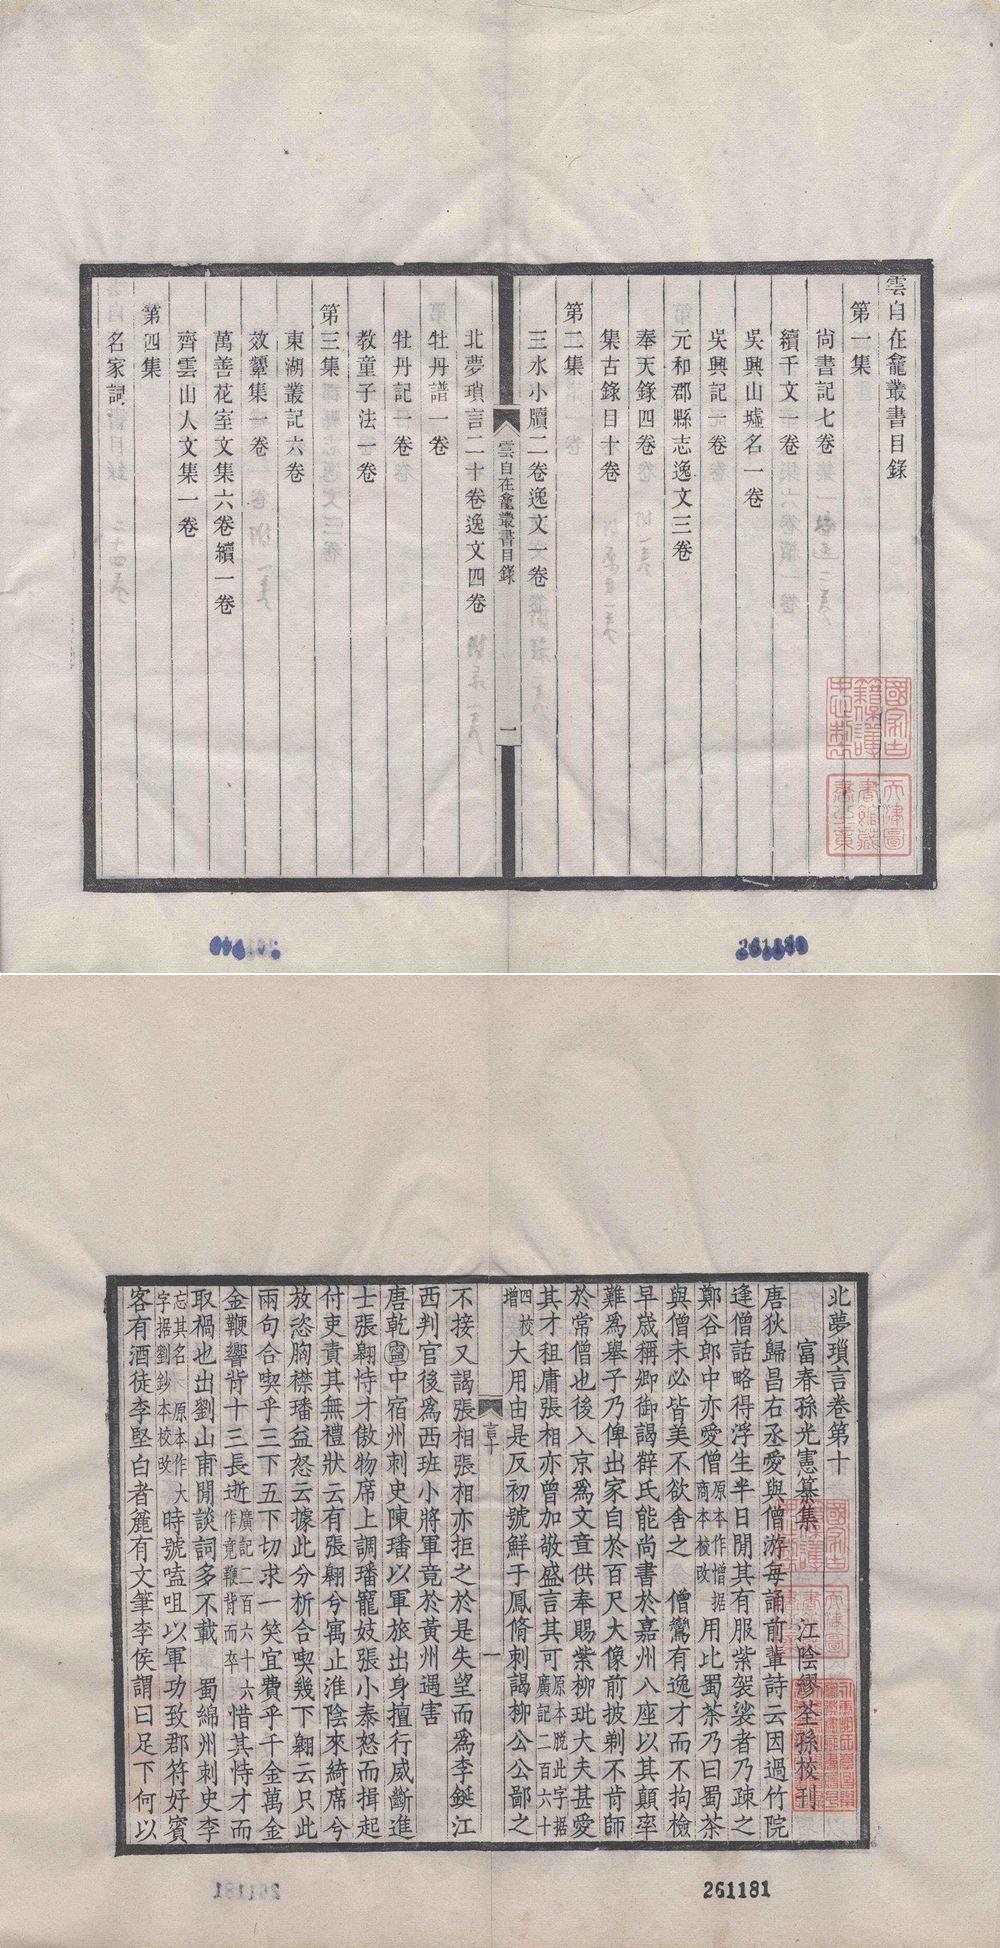 雲自在龕叢書目錄
第一集
尚書記七卷
續千文一卷
吳興山墟名一卷
吳興記一卷
元和郡縣志逸文三卷
奉天錄四卷
集古錄目十卷
第二集
三水小牘二卷逸文一卷
雲自在龕叢書目錄
一
北夢瑣言二十卷逸文四卷
牡丹譜一卷
牡丹記一卷
教童子法一卷
第三集
東湖叢記六卷
效顰集一卷
萬善花室文集六卷續一卷
齊雲山人文集一卷
第四集
名家詞
國家古籍保護
天津圖書館藏書之章
261181
北夢瑣言卷第十
富春孫光憲纂集 江陰繆荃孫校刊
唐狄歸昌右丞愛與僧游每誦前輩詩云因過竹院
逢僧話略得浮生半日閒其有服紫袈裟者乃疎之
鄭谷郎中亦愛僧原本作憎據商本校改用比蜀茶乃曰蜀茶
與僧未必皆美不欲舍之 僧鸞有逸才而不拘檢
早歲稱卿御謁薛氏能尚書於嘉州八座以其顛率
難爲舉子乃俾出家自於百尺大像前披剃不肯師
於常僧也後入京爲文章供奉賜紫柳玭大夫甚愛
其才租庸張相亦曾加敬盛言其可原本脫此字據廣記二百六十
四校增大用由是反初號鮮于鳳脩刺謁柳公公鄙之
言十
一
不接又謁張相張相亦拒之於是失望而爲李鋋江
西判官後爲西班小將軍竟於黃州遇害
唐乾寧中宿州刺史陳璠以軍旅出身擅行威斷進
士張翱恃才傲物席上調璠寵妓張小泰怒而揖起
付吏責其無禮狀云有張翱兮寓止淮陰來綺席兮
放恣胸襟璠益怒云據此分析合喫幾下翱云只此
兩句合喫乎三下五下切求一笑宜費乎千金萬金
金鞭響背十三長逝廣記二百六十六作竟鞭背而卒惜其恃才而
取禍也出劉山甫閒談詞多不載 蜀綿州刺史李
忘其名原本作大字據劉鈔本校改時號嗑咀以軍功致郡符好賓
客有酒徒李堅白者麄有文筆李侯謂曰足下何以
261181